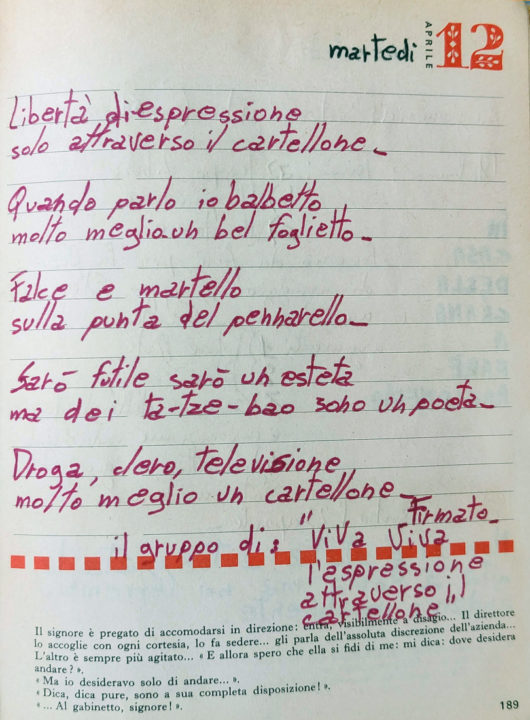 martedi APRILE 12
Libertà di espressione
solo attraverso il cartellone_
Quando parlo io balbetto
molto meglio un bel foglietto_
Falce e martello
sulla punta del pennarello_
Sarò futile sarò un esteta
ma dei ta-tze-bao sono un poeta_
Droga, clero, televisione
molto meglio un cartellone_
Firmato_
il gruppo di: "Viva Viva
l'espressione
attraverso il
cartellone
Il signore è pregato di accomodarsi in direzione: entra, visibilmente a disagio... Il direttore
lo accoglie con ogni cortesia, lo fa sedere... gli parla dell'assoluta discrezione dell'azienda...
L'altro è sempre più agitato... « E allora spero che ella si fidi di me: mi dica: dove desidera
andare? ».
« Ma io desideravo solo di andare... ».
« Dica, dica pure, sono a sua completa disposizione! ».
« ... Al gabinetto, signore! ».
189